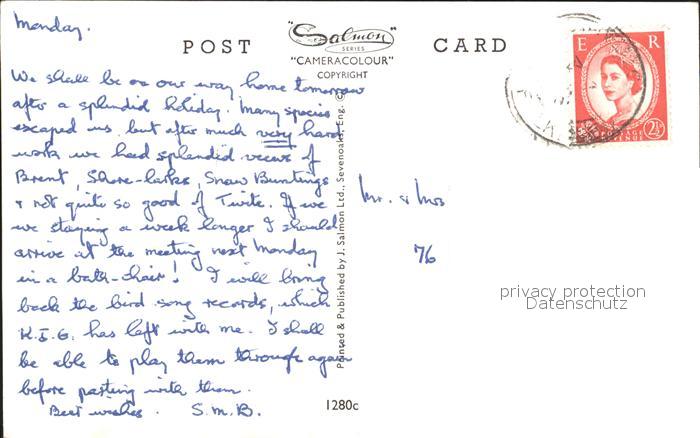 Monday.
POST "Salmon" SERIES CARD
"CAMERACOLOUR"
COPYRIGHT
E R
2½
POSTAGE
REVENUE
We shall be on our way home tomorrow
after a splendid holiday. Many species
escaped us, but after much very hard
work we had splendid views of
Brent, Shore-larks, Snow Buntings
+ not quite so good of Twite. If we
we staying a week longer I should
arrive at the meeting next Monday
in a bath-chair! I will bring
back the bird song records, which
K.I.G. has left with me. I shall
be able to play them through again
before parting with them.
Best wishes. S.M.B.
Printed & Published by J. Salmon Ltd., Sevenoaks, Eng. ©
Mr. & Mrs
76
privacy protection
Datenschutz
1280c